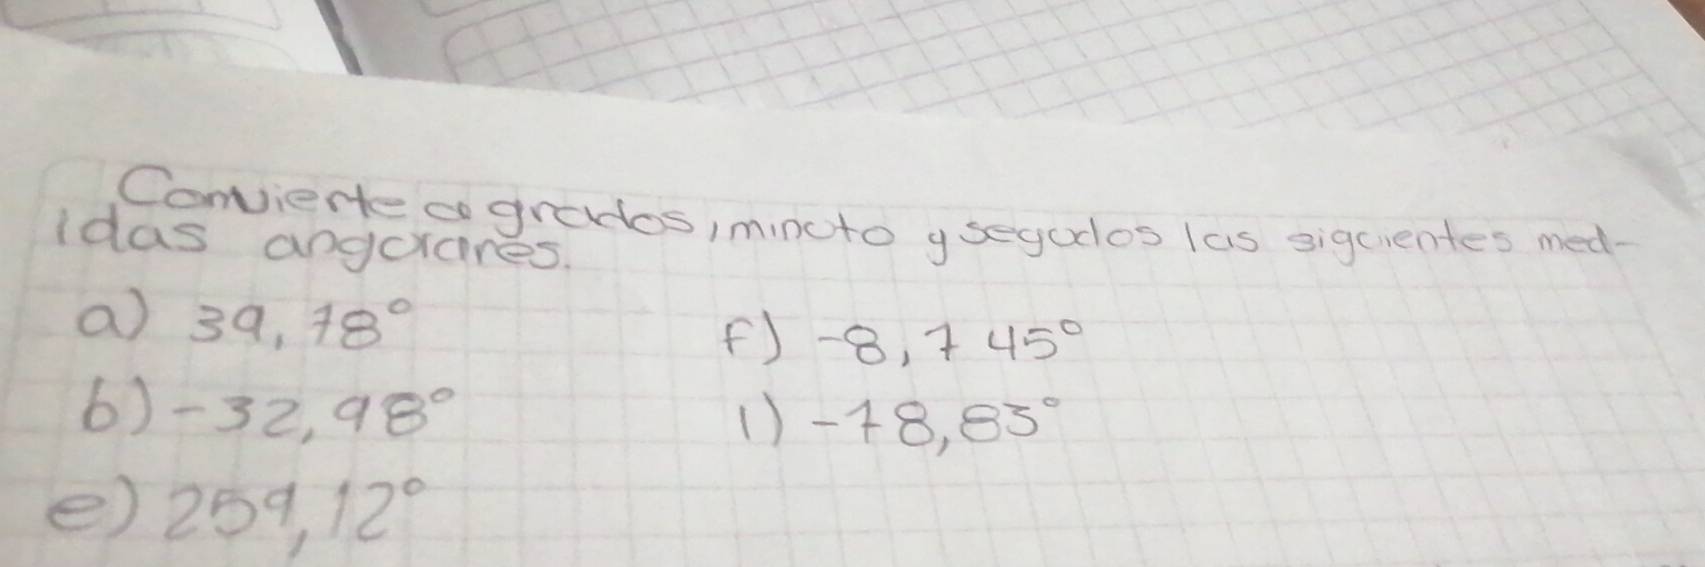 Convierte a grados, minuto y segudos las siguientes med-
idas angulares.
a) 39,78°
f) -8,745°
b) -32,98°
i) -78,83°
e) 259,12°